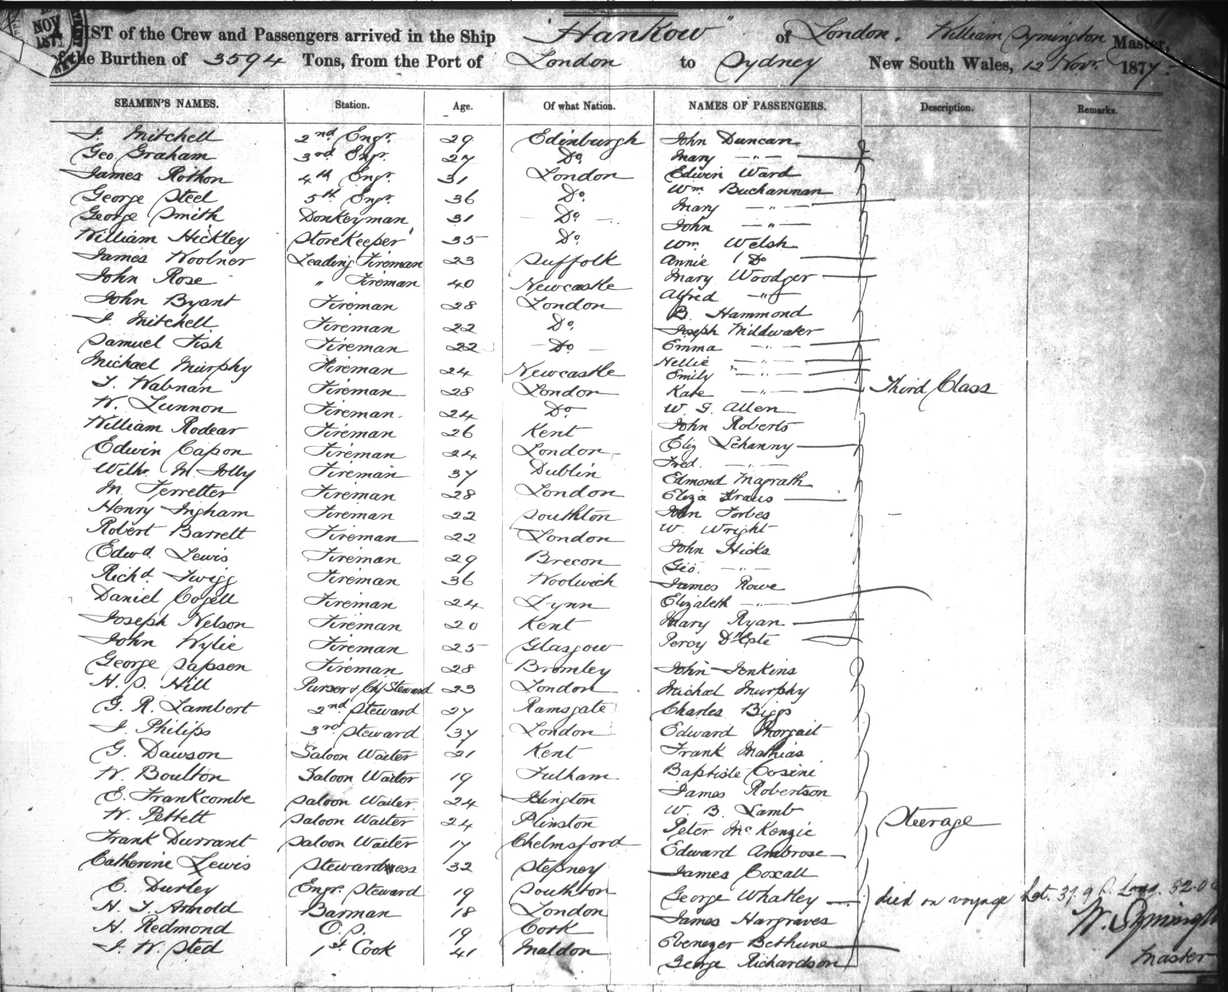 NOV
187
LIST of the Crew and Passengers arrived in the Ship "Hankow" of London. William Symington Master,
of the Burthen of 3594 Tons, from the Port of London to Sydney New South Wales, 12 Novr. 1877
SEAMEN'S NAMES. Station. Age. Of what Nation. NAMES OF PASSENGERS. Description. Remarks.
J. Mitchell 2nd Engr. 29 Edinburgh John Duncan
Geo Graham 3rd Engr. 27 Do Mary — " —
James Rothon 4th Engr. 31 London Edwin Ward
George Steel 5th Engr. 36 Do. Wm Buchannan
George Smith Donkeyman 31 Do Mary — " —
William Hickley Storekeeper 35 Do. John — " —
James Woolner Leading Fireman 23 Suffolk Wm. Welsh
John Rose " Fireman 40 Newcastle Annie Do
John Byant Fireman 28 London Mary Woodger
J. Mitchell Fireman 22 Do. Alfred — " —
Samuel Fish Fireman 22 Do B. Hammond
Michael Murphy Fireman 24 Newcastle Joseph Mildwater
T. Fireman 28 London Emma — " —
W. Lunnon Fireman. 24 Do Nellie — " —
William Rodear Fireman 26 Kent Emily — " —
Edwin Capon Fireman 24 London Kate — " — Third Class
Willm. M. Jolly Fireman 37 Dublin W. G. Allen
M. Ferretter Fireman 28 London John Roberts
Henry Ingham Fireman 22 Southton Eliz Lehanny
Robert Barrett Fireman 22 London Fred. — " —
Edwd Lewis Fireman 29 Brecon Edmond Magrath
Richd Twigg Fireman 36 Woolwich Eliza Kraus
Daniel Fireman 24 Lynn John Forbes
Joseph Nelson Fireman 20 Kent W Wright
John Wylie Fireman 25 Glasgow John Hicks
George Sapson Fireman 28 Bromley Geo. — " —
H. S. Hill Pursers Chf Steward 23 London James Rowe
G. R. Lambert 2nd Steward 27 Ramsgate Elizabeth — " —
J. Philips 3rd Steward 37 London Mary Ryan
G. Dawson Saloon Waiter 21 Kent Percy D'Este
W. Boulton Saloon Waiter 19 Fulham John Jenkins
E. Frankcombe Saloon Waiter 24 Islington Michael Murphy
W. Pettett Saloon Waiter 24 Charles Biggs
Frank Durrant Saloon Waiter 17 Chelmsford Edward
Catherine Lewis Stewardess 32 Stepney Frank Mathias
C. Durley Engr. Steward 19 Southton Baptiste Corsini
H. T. Arnold Barman 18 London James Robertson
H. Redmond O.S. 19 Cork W. B. Lamb
J. W. Sted 1st Cook 41 Maldon Peter McKenzie Steerage
Edward Ambrose
James Coxall
George Whatley died on voyage Lat. 37.9 S. Long. 52.0
James Hargraves W. Symington
Ebenezer Bethune Master
George Richardson